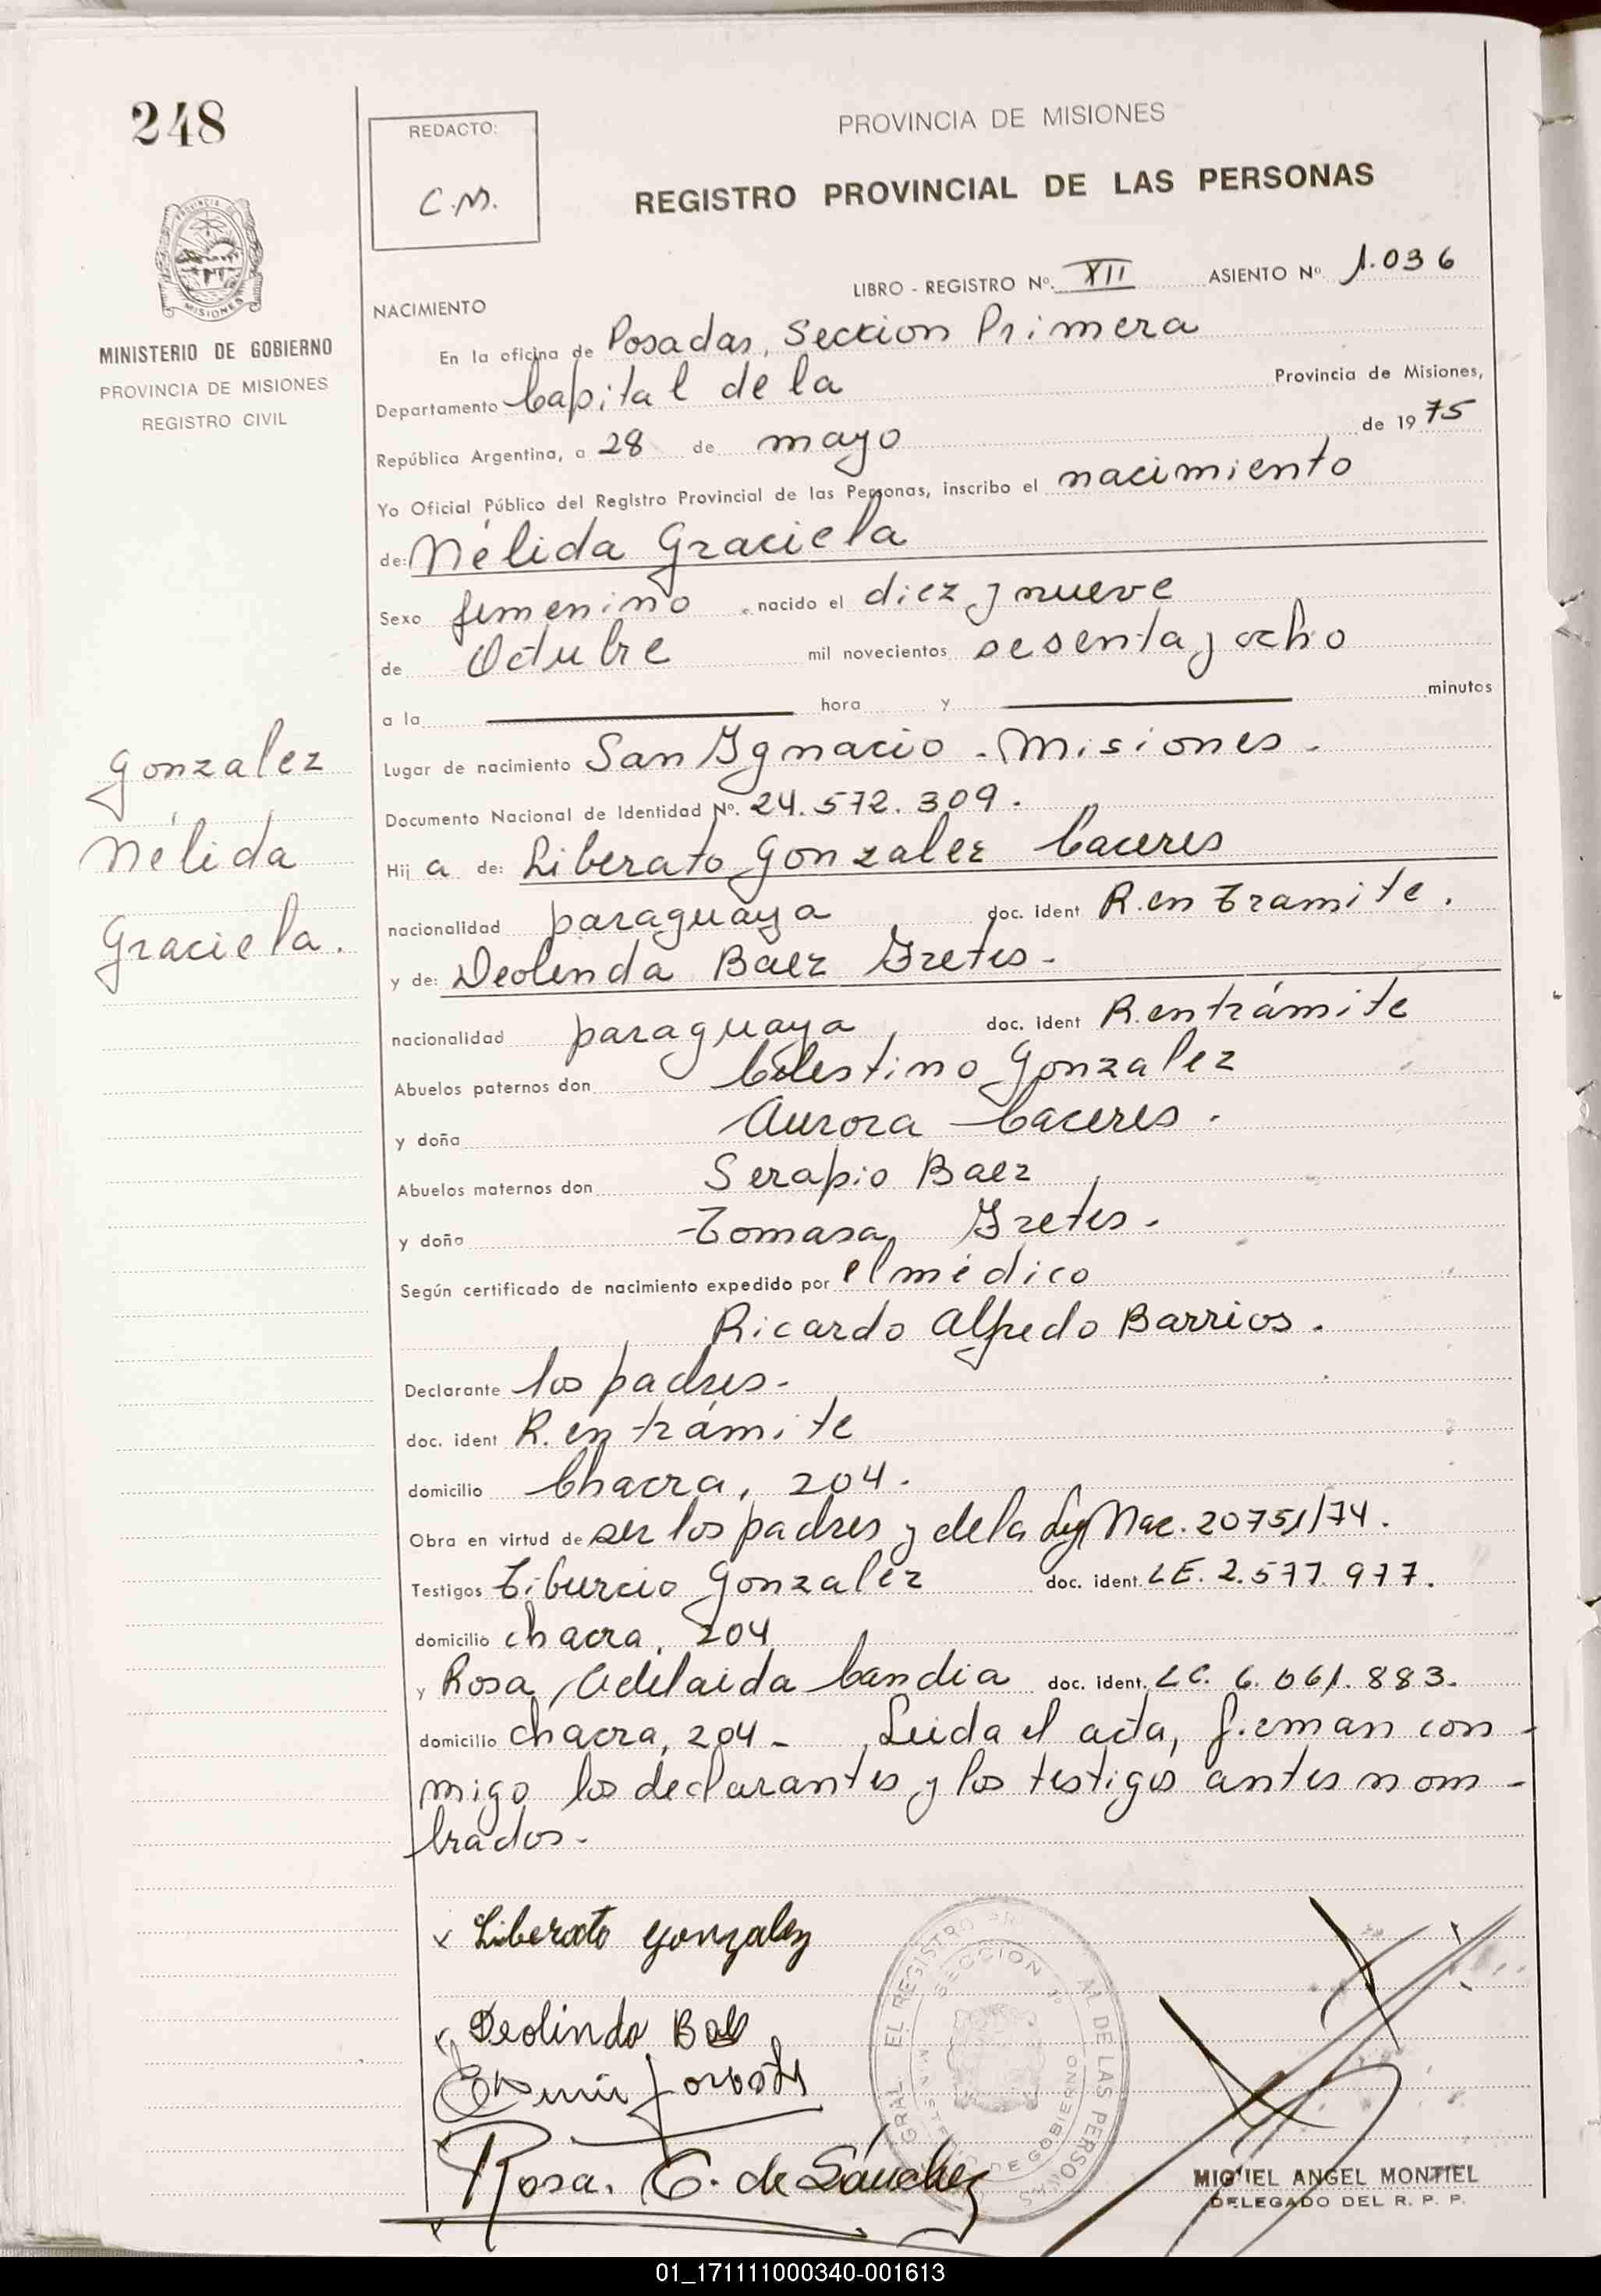 248
REDACTO:
C.M.
PROVINCIA DE MISIONES
REGISTRO PROVINCIAL DE LAS PERSONAS
MISIONES
MINISTERIO DE GOBIERNO
PROVINCIA DE MISIONES
REGISTRO CIVIL
LIBRO - REGISTRO Nº. XII ASIENTO Nº. 1.036
NACIMIENTO
En la oficina de Posadas, Seccion Primera
Departamento Capital de la Provincia de Misiones,
República Argentina, a 28 de mayo de 1975
Yo Oficial Público del Registro Provincial de las Personas, inscribo el nacimiento
de: Nélida Graciela
Sexo femenino, nacido el diez y nueve
de Octubre mil novecientos sesenta y ocho
a la hora y minutos
Gonzalez
Nélida
Graciela.
Lugar de nacimiento San Ignacio - Misiones.
Documento Nacional de Identidad Nº. 24.572.309.
Hij a de: Liberato Gonzalez Caceres
nacionalidad paraguaya doc. ident R. en Tramite.
y de: Deolinda Baez Fretes-
nacionalidad paraguaya, doc. ident R. en trámite
Abuelos paternos don Celestino Gonzalez
y doña Aurora Caceres.
Abuelos maternos don Serapio Baez
y doña Tomasa Fretes.
Según certificado de nacimiento expedido por el médico
Ricardo Alfredo Barrios.
Declarante los padres.-
doc. ident R. en trámite
domicilio Chacra, 204.
Obra en virtud de ser los padres y de la Ley Nac. 20751/74.
Testigos Tiburcio Gonzalez doc. ident. LE. 2.577.977.
domicilio chacra, 204
y Rosa Adelaida Candia doc. ident. LC. 6.061.883.
domicilio chacra, 204 - Leida el acta, firman con-
migo los declarantes y los testigos antes nom-
brados.-
x Liberato gonzalez
x Deolinda
Rosa. C. de Sánchez
GRAL EL REGISTRO AL DE LAS PERSONAS
SECCION 1º
DE GOBIERNO
MIGUEL ANGEL MONTIEL
DELEGADO DEL R. P. P.
01_171111000340-001613